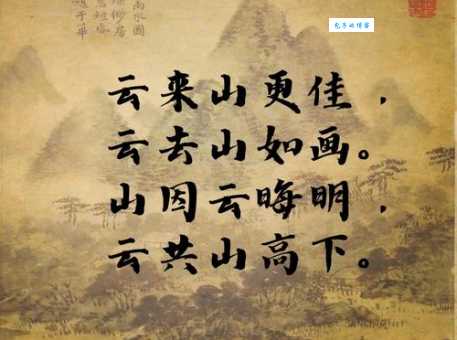 云来山更佳，
云去山如画。
山因云晦明，
云共山高下。